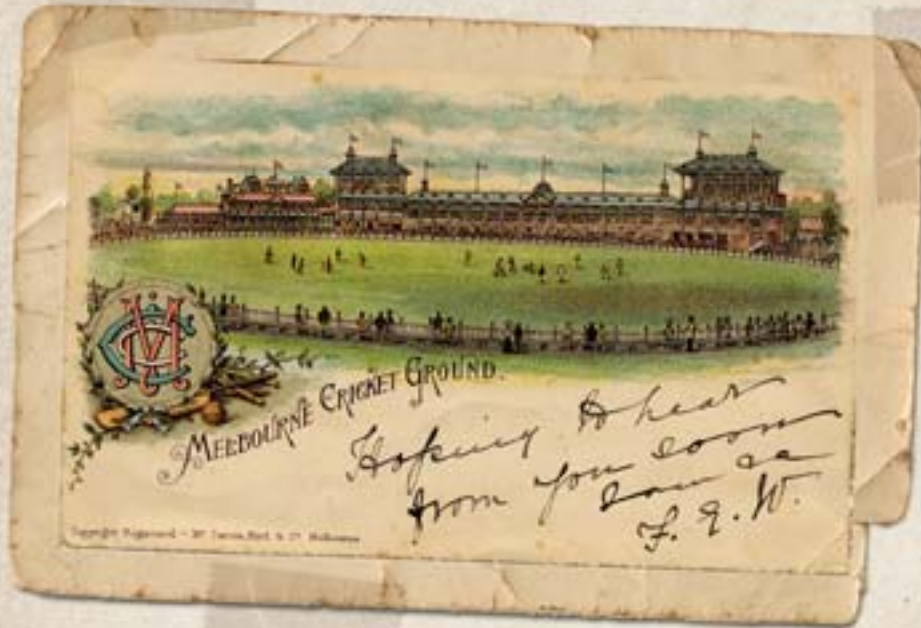 MELBOURNE CRICKET GROUND.
Hoping to hear
from you soon
F. E. W.
Copyright Registered - Mc Carron, Bird & Co Melbourne